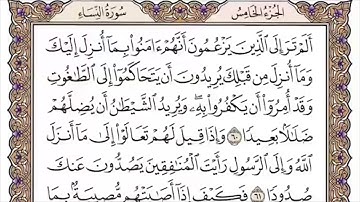 الجزء الخامس سورة النساء
ألم تر إلى الذين يزعمون أنهم ءامنوا بما أنزل إليك
وما أنزل من قبلك يريدون أن يتحاكموا إلى الطغوت
وقد أمروا أن يكفروا به ويريد الشيطن أن يضلهم
ضللا بعيدا ٦٠ وإذا قيل لهم تعالوا إلى ما أنزل
الله وإلى الرسول رأيت المنفقين يصدون عنك
صدودا ٦١ فكيف إذا أصبتهم مصيبة بما